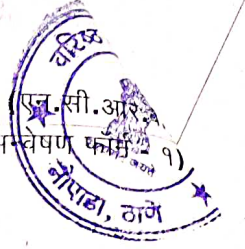 वरिष्ठ
एन.सी.आर.
न्वेषण फॉर्म - १)
नौपाडा, ठाणे